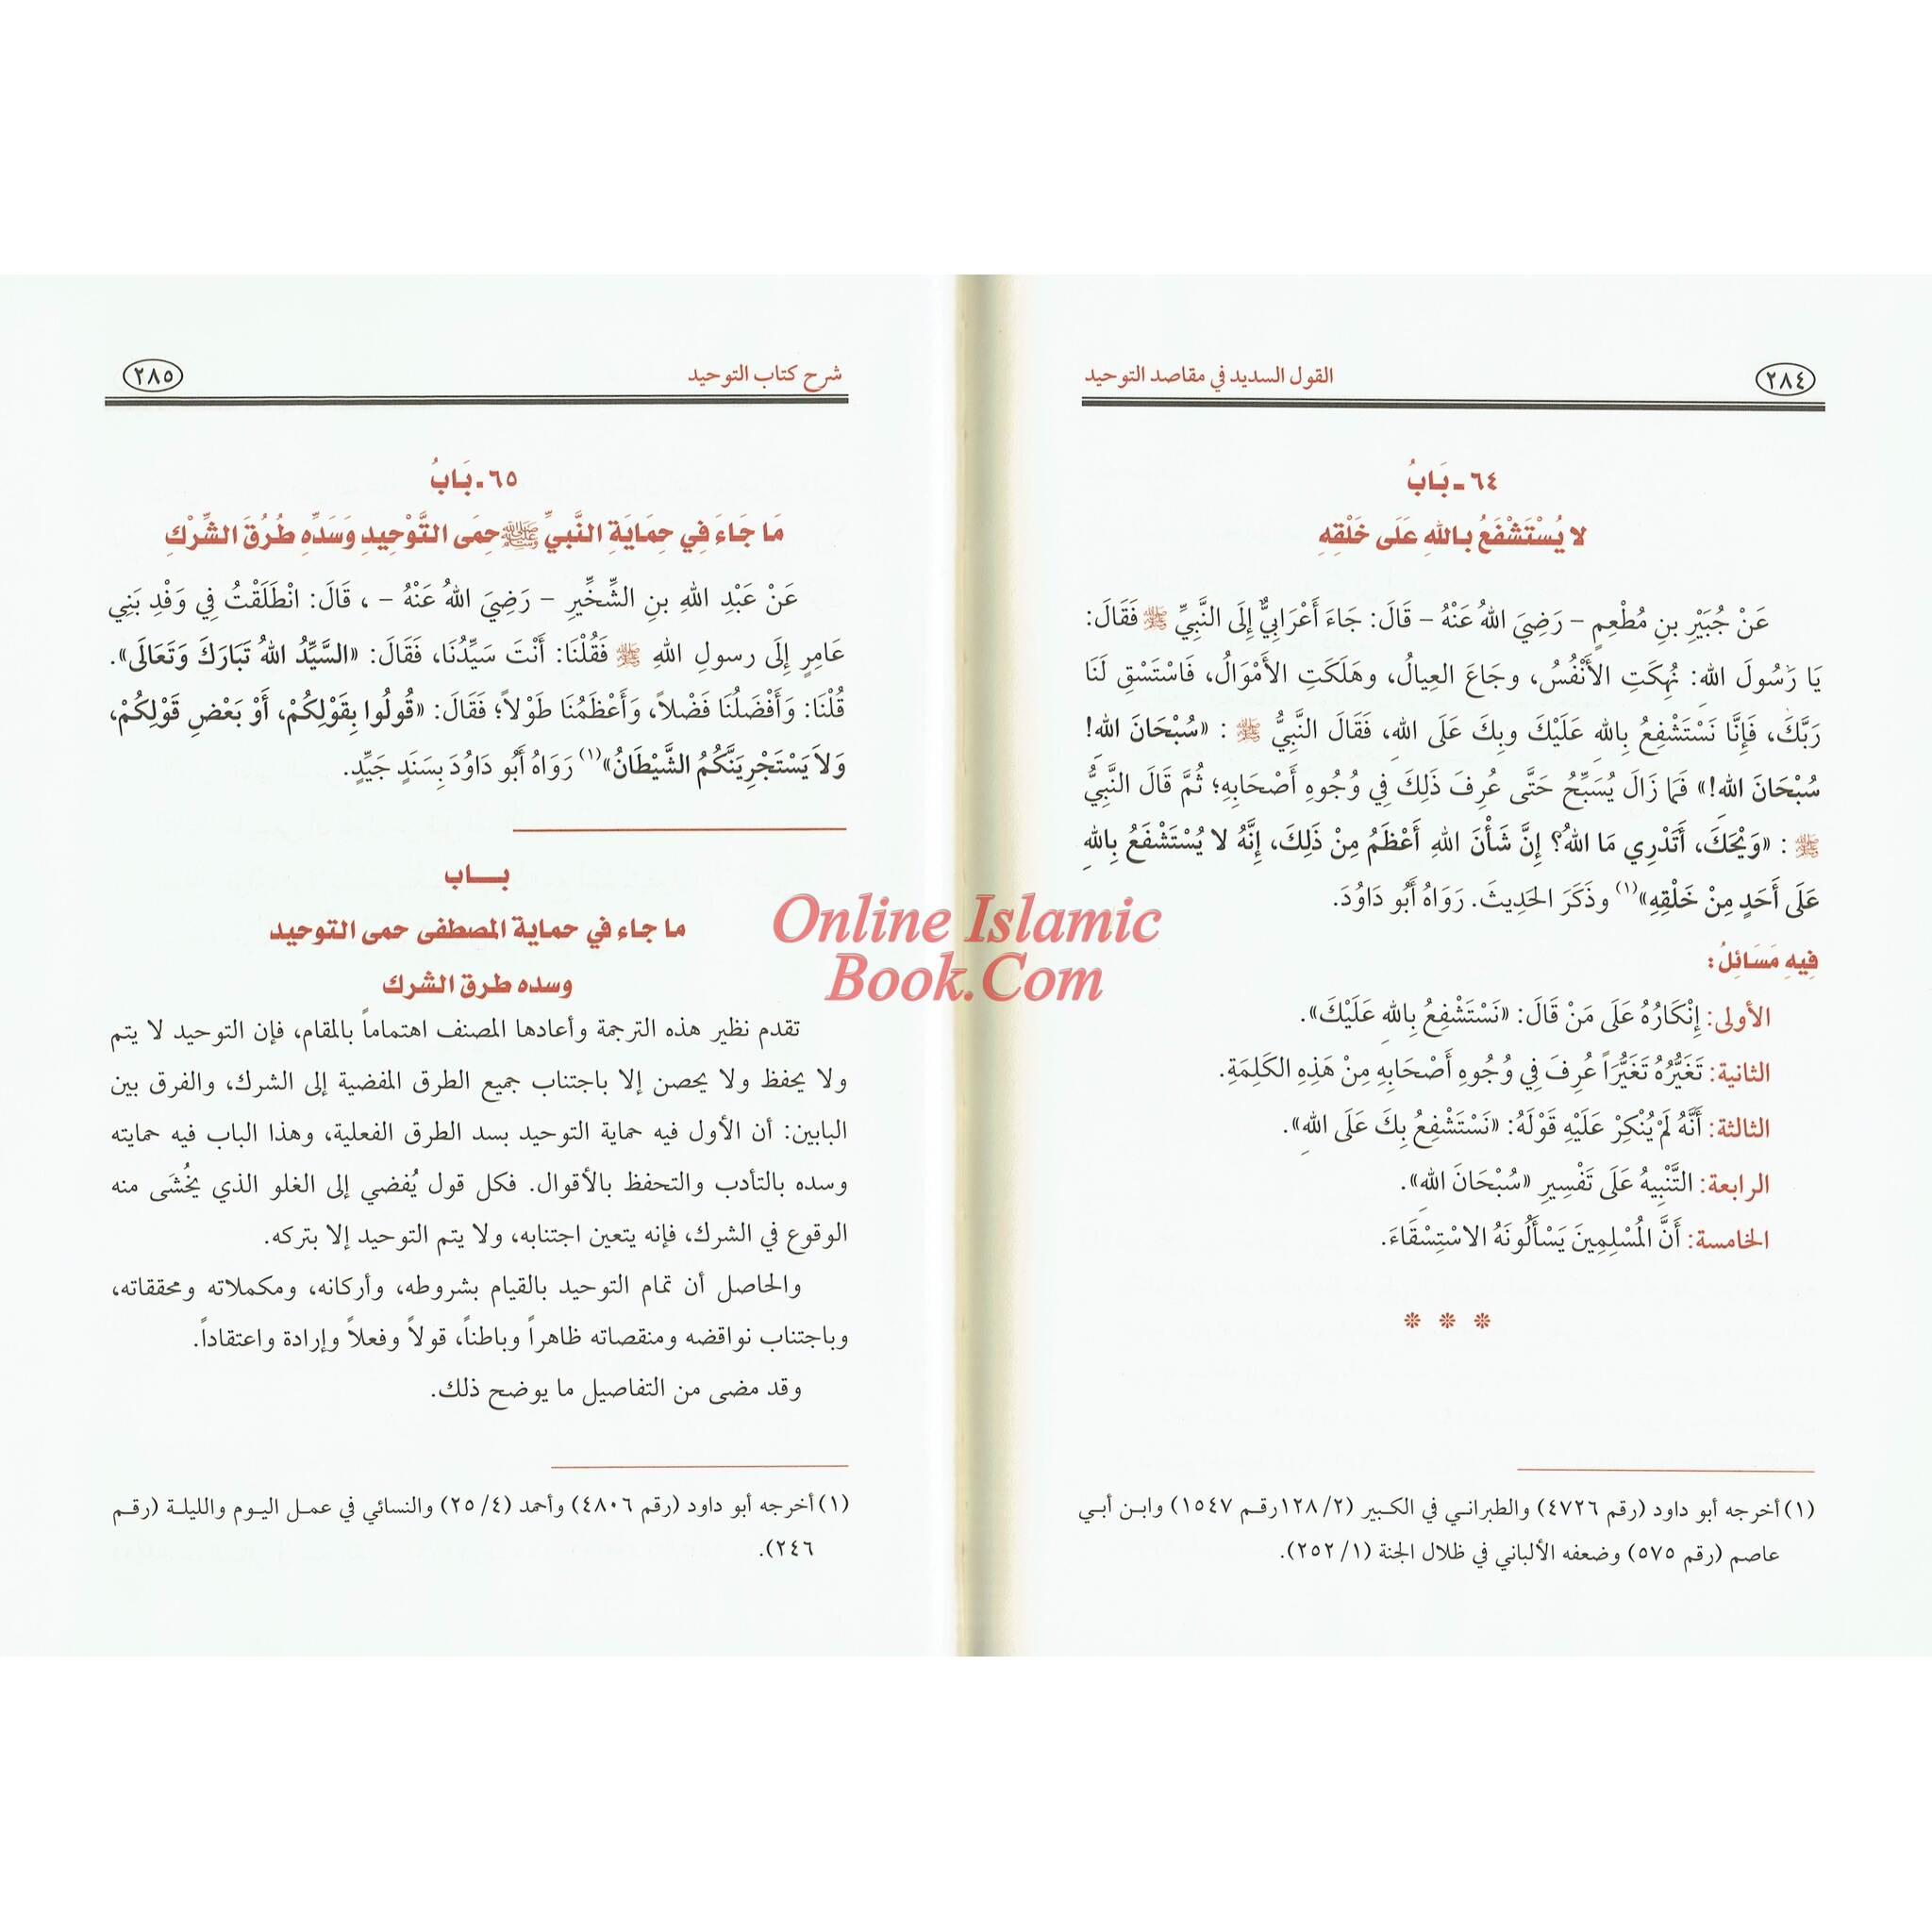 ٢٨٤ القول السديد في مقاصد التوحيد
٦٤ ـ بَابُ
لا يُسْتَشْفَعُ بِاللهِ عَلَى خَلْقِهِ
عَنْ جُبَيْرِ بنِ مُطْعِمٍ – رَضِيَ اللهُ عَنْهُ – قَالَ: جَاءَ أَعْرَابِيٌّ إِلَى النَّبِيِّ ﷺ فَقَالَ:
يَا رَسُولَ اللهِ: نُهِكَتِ الأَنْفُسُ، وجَاعَ العِيالُ، وهَلَكَتِ الأَمْوَالُ، فَاسْتَسْقِ لَنَا
رَبَّكَ، فَإِنَّا نَسْتَشْفِعُ بِاللهِ عَلَيْكَ وبِكَ عَلَى اللهِ، فَقَالَ النَّبِيُّ ﷺ : «سُبْحَانَ اللهِ!
سُبْحَانَ اللهِ!» فَمَا زَالَ يُسَبِّحُ حَتَّى عُرِفَ ذَلِكَ فِي وُجُوهِ أَصْحَابِهِ؛ ثُمَّ قَالَ النَّبِيُّ
ﷺ : «وَيْحَكَ، أَتَدْرِي مَا اللهُ؟ إِنَّ شَأْنَ اللهِ أَعْظَمُ مِنْ ذَلِكَ، إِنَّهُ لا يُسْتَشْفَعُ بِاللهِ
عَلَى أَحَدٍ مِنْ خَلْقِهِ»(١) وذَكَرَ الحَدِيثَ. رَوَاهُ أَبُو دَاوُدَ.
فِيهِ مَسَائِلُ:
الأولى: إِنْكَارُهُ عَلَى مَنْ قَالَ: «نَسْتَشْفِعُ بِاللهِ عَلَيْكَ».
الثانية: تَغَيُّرُهُ تَغَيُّرَاً عُرِفَ فِي وُجُوهِ أَصْحَابِهِ مِنْ هَذِهِ الكَلِمَةِ.
الثالثة: أَنَّهُ لَمْ يُنْكِرْ عَلَيْهِ قَوْلَهُ: «نَسْتَشْفِعُ بِكَ عَلَى اللهِ».
الرابعة: التَّنْبِيهُ عَلَى تَفْسِيرِ «سُبْحَانَ اللهِ».
الخامسة: أَنَّ المُسْلِمِينَ يَسْأَلُونَهُ الاسْتِسْقَاءَ.
(١) أخرجه أبو داود (رقم ٤٧٢٦) والطبراني في الكبير (١٢٨/٢ رقم ١٥٤٧) وابن أبي
عاصم (رقم ٥٧٥) وضعفه الألباني في ظلال الجنة (٢٥٢/١).
شرح كتاب التوحيد ٢٨٥
٦٥ ـ بَابُ
مَا جَاءَ فِي حِمَايَةِ النَّبِيِّ ﷺ حِمَى التَّوْحِيدِ وَسَدِّهِ طُرُقَ الشِّرْكِ
عَنْ عَبْدِ اللهِ بنِ الشِّخِّيرِ – رَضِيَ اللهُ عَنْهُ – ، قَالَ: انْطَلَقْتُ فِي وَفْدِ بَنِي
عَامِرٍ إِلَى رسولِ اللهِ ﷺ فَقُلْنَا: أَنْتَ سَيِّدُنَا، فَقَالَ: «السَّيِّدُ اللهُ تَبَارَكَ وَتَعَالَى».
قُلْنَا: وَأَفْضَلُنَا فَضْلاً، وَأَعْظَمُنَا طَوْلاً؛ فَقَالَ: «قُولُوا بِقَوْلِكُمْ، أَوْ بَعْضِ قَوْلِكُمْ،
وَلاَ يَسْتَجْرِيَنَّكُمُ الشَّيْطَانُ»(١) رَوَاهُ أَبُو دَاوُدَ بِسَنَدٍ جَيِّدٍ.
بـــاب
ما جاء في حماية المصطفى حمى التوحيد
وسده طرق الشرك
تقدم نظير هذه الترجمة وأعادها المصنف اهتماماً بالمقام، فإن التوحيد لا يتم
ولا يحفظ ولا يحصن إلا باجتناب جميع الطرق المفضية إلى الشرك، والفرق بين
البابين: أن الأول فيه حماية التوحيد بسد الطرق الفعلية، وهذا الباب فيه حمايته
وسده بالتأدب والتحفظ بالأقوال. فكل قول يُفضي إلى الغلو الذي يُخْشَى منه
الوقوع في الشرك، فإنه يتعين اجتنابه، ولا يتم التوحيد إلا بتركه.
والحاصل أن تمام التوحيد بالقيام بشروطه، وأركانه، ومكملاته ومحققاته،
وباجتناب نواقضه ومنقصاته ظاهراً وباطناً، قولاً وفعلاً وإرادة واعتقاداً.
وقد مضى من التفاصيل ما يوضح ذلك.
(١) أخرجه أبو داود (رقم ٤٨٠٦) وأحمد (٢٥/٤) والنسائي في عمل اليوم والليلة (رقم
٢٤٦).
Online Islamic
Book.Com